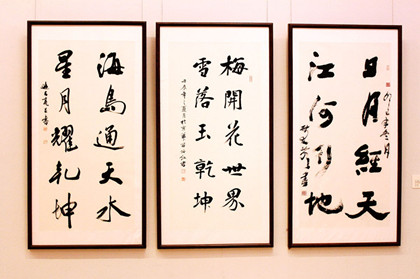 海島通天水
星月耀乾坤
梅開花世界
雪落玉乾坤
日月經天
江河行地